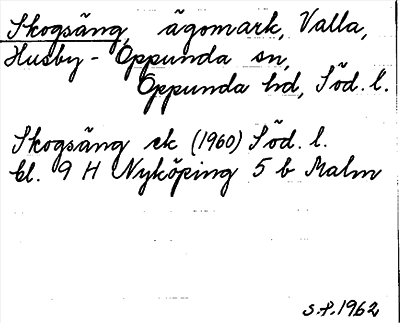 Skogsäng, ägomark, Valla,
Husby-Oppunda sn,
Oppunda hd, Söd. l.
Skogsäng ek (1960) Söd. l.
bl. 9 H Nyköping 5 b Malm
S.P. 1962